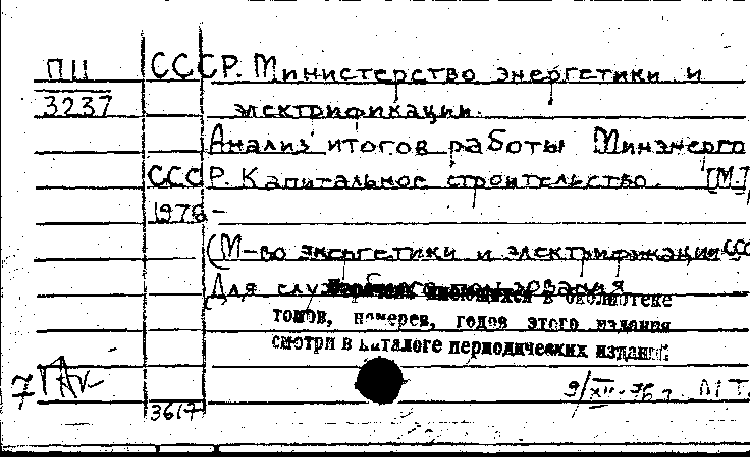 ПII СССР. Министерство энергетики и
3237 электрификации.
Анализ итогов работы Минэнерго
СССР. Капитальное строительство. [М.],
1976-
(М-во энергетики и электрификации ССС
Для служебного пользования
Перечень имеющихся в библиотеке
томов, номеров, годов этого издания
смотри в каталоге периодических изданий.
7
9/XII-76 г. М Т.
3617